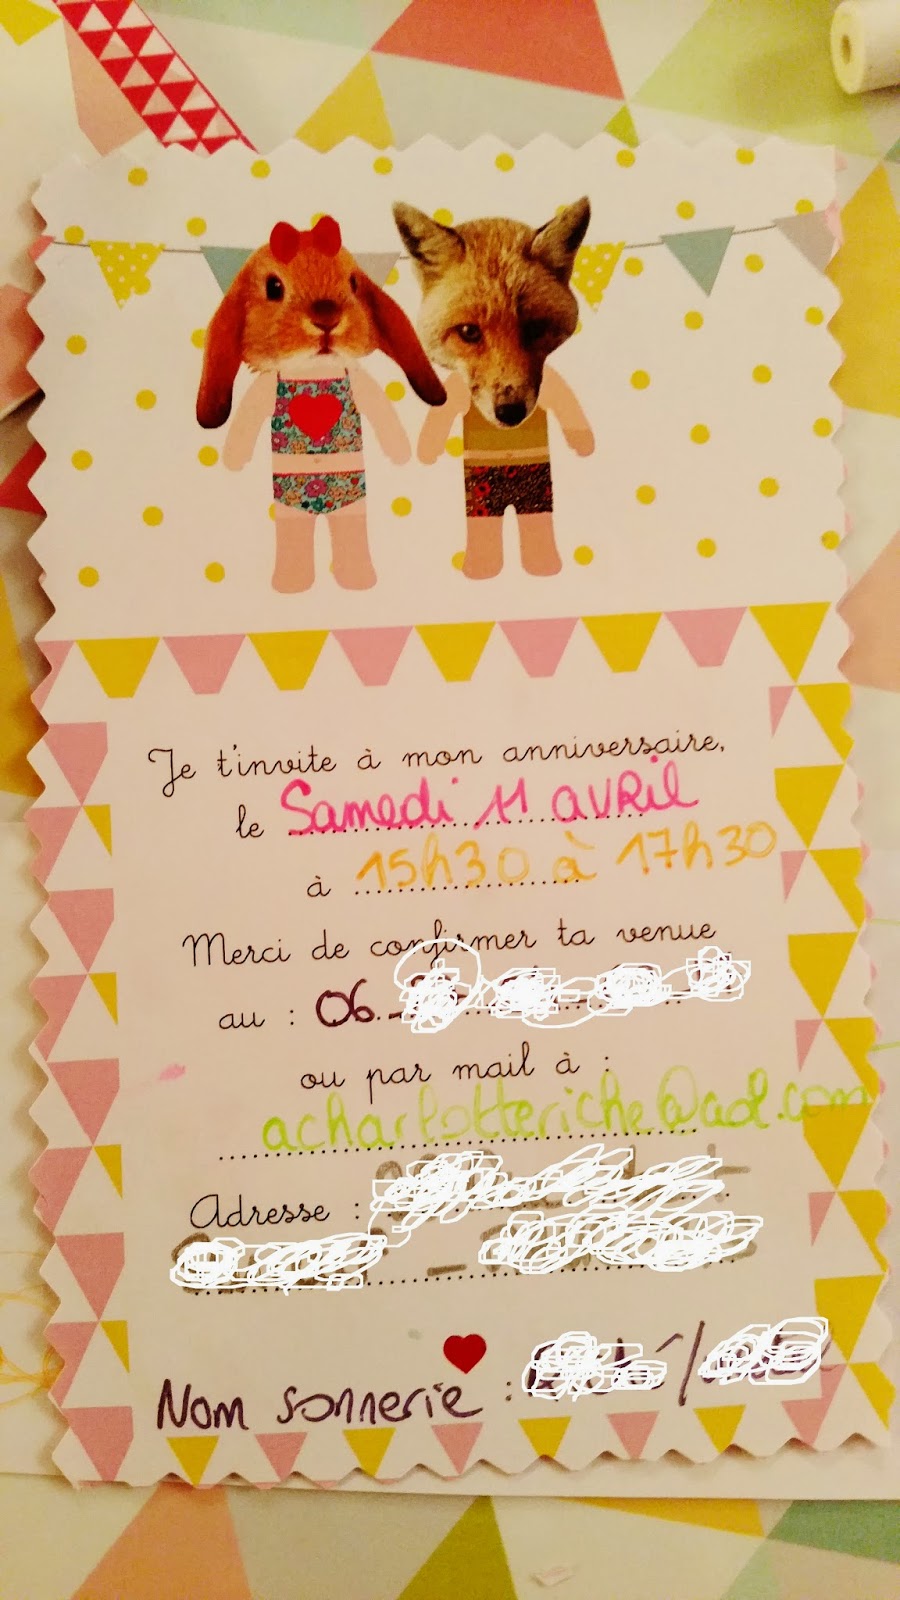 Je t'invite à mon anniversaire,
le Samedi 11 avril
à 15h30 à 17h30
Merci de confirmer ta venue
au : 06
ou par mail à :
acharlotteriche@aol.com
Adresse :
Nom sonnerie :